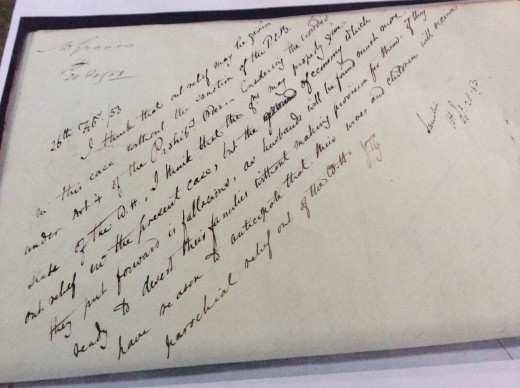 Mr Graves
26th Feb: 53
I think that out relief may be given
in this case without the sanction of the P.L.B.
under Art: 4 of the Prohibt Considering the crowded
state of the W.H., I think that the Gns may properly give
out relief in the present case, but the ground of economy which
they put forward is fallacious, as husbands will be found much more
ready to desert their families without making provision for them, if they
have reason to anticipate that their wives and children will receive
parochial relief out of the W.H.